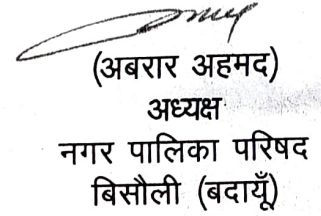 (अबरार अहमद)
अध्यक्ष
नगर पालिका परिषद
बिसौली (बदायूँ)